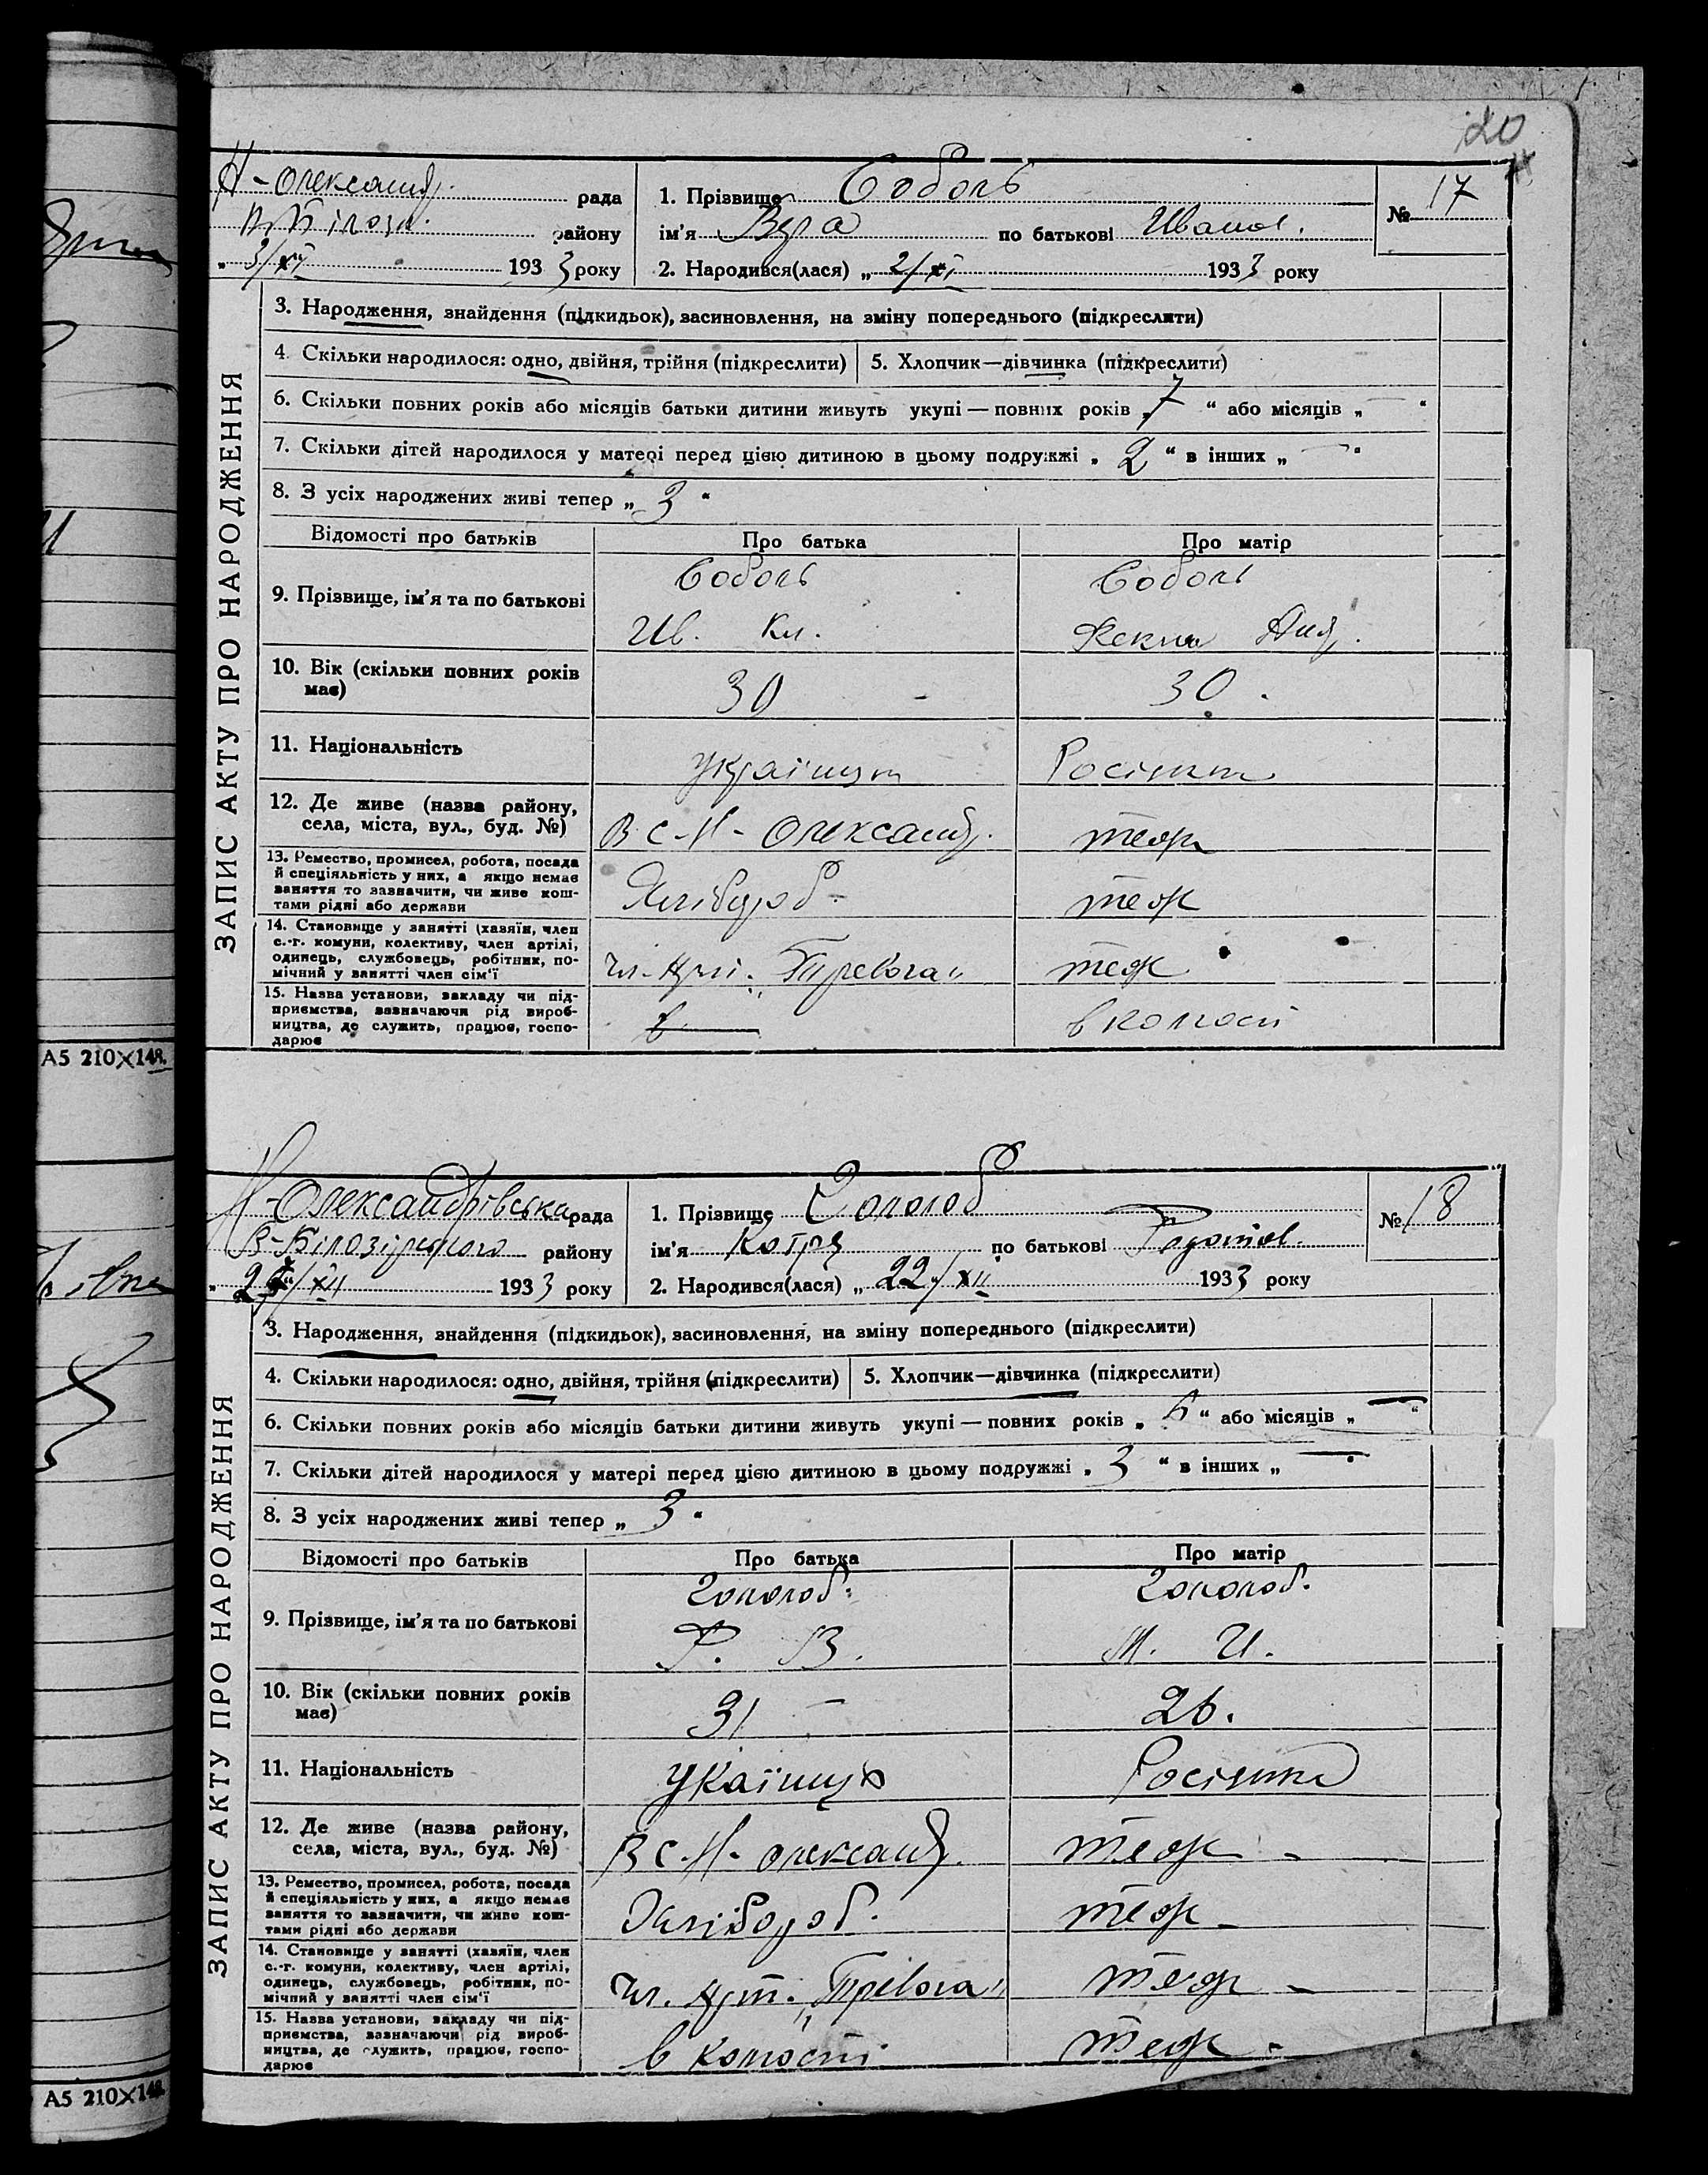 20
Н-Олександ. рада
В-Білоз. району
„ 3/XI 1933 року
1. Прізвище Соболь
ім'я Вера по батькові Иванов.
2. Народився(лася) „ 2/XI 1933 року
№ 17
ЗАПИС АКТУ ПРО НАРОДЖЕННЯ
3. Народження, знайдення (підкидьок), засиновлення, на зміну попереднього (підкреслити)
4. Скільки народилося: одно, двійня, трійня (підкреслити) 5. Хлопчик—дівчинка (підкреслити)
6. Скільки повних років або місяців батьки дитини живуть укупі — повних років „ 7 “ або місяців „ — “
7. Скільки дітей народилося у матері перед цією дитиною в цьому подружжі „ 2 “ в інших „ — “
8. З усіх народжених живі тепер „ 3 “
Відомості про батьків Про батька Про матір
9. Прізвище, ім'я та по батькові
Соболь Соболь
Ив. Кл. Фекла Анд.
10. Вік (скільки повних років
має)
30 - 30.
11. Національність
Україн Росіянка
12. Де живе (назва району,
села, міста, вул., буд. №)
В С-Н-Олександ. теж
13. Ремество, промисел, робота, посада
й спеціяльність у них, а якщо немає
заняття то зазначити, чи живе кош-
тами рідні або держави
Хлібороб- теж
14. Становище у занятті (хазяїн, член
с.-г. комуни, колективу, член артілі,
одинець, службовець, робітник, по-
мічний у занятті член сім'ї
Чл. арт. „Тревога“ теж
15. Назва установи, закладу чи під-
приємства, зазначаючи рід вироб-
ництва, де служить, працює, госпо-
дарює
в колгоспі
А5 210×148.
Н-Олександрівська рада
В-Білозірського району
„ XII 1933 року
1. Прізвище Гололоб
ім'я Котря по батькові
2. Народився(лася) „ 22/XII 1933 року
№ 18
ЗАПИС АКТУ ПРО НАРОДЖЕННЯ
3. Народження, знайдення (підкидьок), засиновлення, на зміну попереднього (підкреслити)
4. Скільки народилося: одно, двійня, трійня (підкреслити) 5. Хлопчик—дівчинка (підкреслити)
6. Скільки повних років або місяців батьки дитини живуть укупі — повних років „ 6 “ або місяців „ — “
7. Скільки дітей народилося у матері перед цією дитиною в цьому подружжі „ 3 “ в інших „ — “
8. З усіх народжених живі тепер „ 3 “
Відомості про батьків Про батька Про матір
9. Прізвище, ім'я та по батькові
Гололоб. Гололоб.
Р. В. М. И.
10. Вік (скільки повних років
має)
31 - 26.
11. Національність
Україн Росіянка
12. Де живе (назва району,
села, міста, вул., буд. №)
В С-Н-Олександ. теж -
13. Ремество, промисел, робота, посада
й спеціяльність у них, а якщо немає
заняття то зазначити, чи живе кош-
тами рідні або держави
Хлібороб. теж -
14. Становище у занятті (хазяїн, член
с.-г. комуни, колективу, член артілі,
одинець, службовець, робітник, по-
мічний у занятті член сім'ї
Чл. арт. „Тревога“ теж -
15. Назва установи, закладу чи під-
приємства, зазначаючи рід вироб-
ництва, де служить, працює, госпо-
дарює
в колгоспі теж -
А5 210×148.